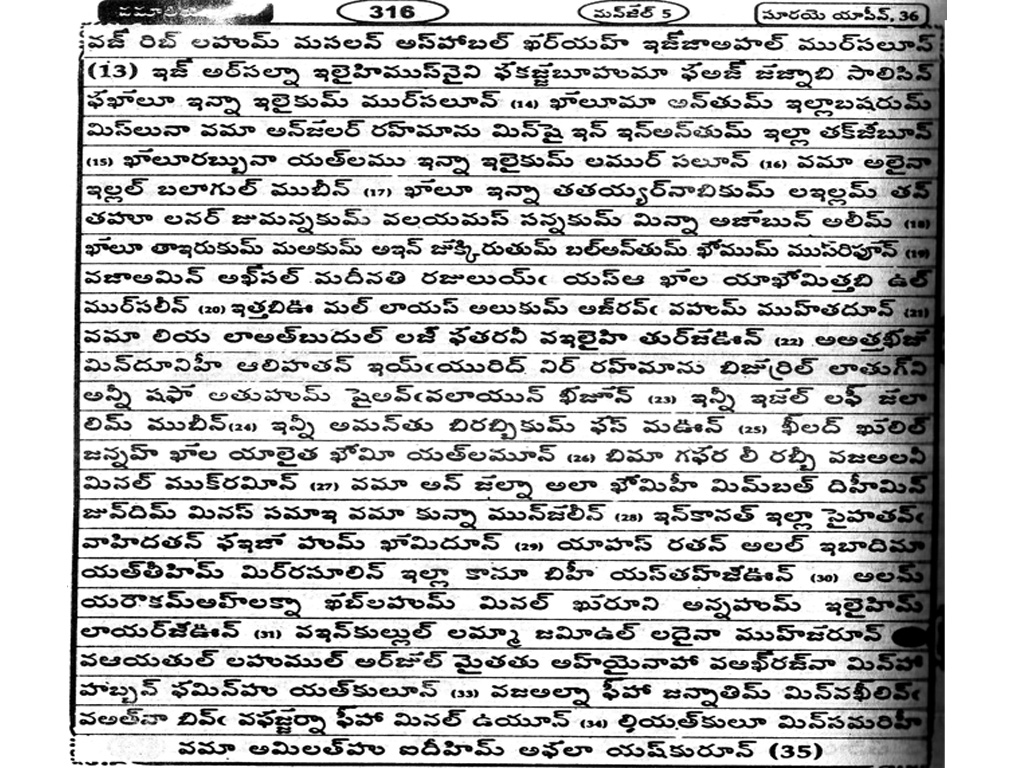 316
మన్‌జిల్ 5
సూరయె యాసీన్, 36
వజ్ రిబ్ లహుమ్ మసలన్ అస్‌హాబల్ ఖర్‌యహ్ ఇజ్‌జాఅహల్ ముర్‌సలూన్
(13) ఇజ్ అర్‌సల్నా ఇలైహిముస్‌నైని ఫకజ్జబూహుమా ఫఅజ్ జజ్నాబి సాలిసిన్
ఫఖాలూ ఇన్నా ఇలైకుమ్ ముర్‌సలూన్ (14) ఖాలూమా అన్‌తుమ్ ఇల్లాబషరుమ్
మిస్‌లునా వమా అన్‌జలర్ రహ్‌మాను మిన్‌షై ఇన్ ఇన్‌అన్‌తుమ్ ఇల్లా తక్‌జిబూన్
(15) ఖాలూరబ్బునా యఅ్‌లము ఇన్నా ఇలైకుమ్ లముర్ సలూన్ (16) వమా అలైనా
ఇల్లల్ బలాగుల్ ముబీన్ (17) ఖాలూ ఇన్నా తతయ్యర్‌నాబికుమ్ లఇల్లమ్ తన్
తహూ లనర్ జుమన్నకుమ్ వలయమస్ సన్నకుమ్ మిన్నా అజాబున్ అలీమ్ (18)
ఖాలూ తాఇరుకుమ్ మఅకుమ్ అఇన్ జుక్కిరుతుమ్ బల్‌అన్‌తుమ్ ఖౌముమ్ ముసరిఫూన్ (19)
వజాఅమిన్ అఖ్‌సల్ మదీనతి రజులుయ్ఁ యస్‌ఆ ఖాల యాఖౌమిత్తబి ఉల్
ముర్‌సలీన్ (20) ఇత్తబిఊ మల్ లాయస్ అలుకుమ్ అజ్‌రవ్ఁ వహుమ్ ముహ్‌తదూన్ (21)
వమా లియ లాఅఅ్‌బుదుల్ లజీ ఫతరనీ వఇలైహి తుర్‌జఊన్ (22) అఅత్తఖిజు
మిన్‌దూనిహీ ఆలిహతన్ ఇయ్ఁయురిద్ నిర్ రహ్‌మాను బిజుర్రిల్ లాతుగ్‌ని
అన్నీ షఫా అతుహుమ్ షైఅవ్ఁవలాయున్ ఖిజూన్ (23) ఇన్నీ ఇజల్ లఫీ జలా
లిమ్ ముబీన్(24) ఇన్నీ అమన్‌తు బిరబ్బికుమ్ ఫస్ మఊన్ (25) ఖీలద్ ఖులిల్
జన్నహ్ ఖాల యాలైత ఖౌమీ యఅ్‌లమూన్ (26) బిమా గఫర లీ రబ్బీ వజఅలనీ
మినల్ ముక్‌రమీన్ (27) వమా అన్ జల్నా అలా ఖౌమిహీ మిమ్‌బఅ్ దిహీమిన్
జున్‌దిమ్ మినస్ సమాఇ వమా కున్నా మున్‌జిలీన్ (28) ఇన్‌కానత్ ఇల్లా సైహతవ్ఁ
వాహిదతన్ ఫఇజా హుమ్ ఖామిదూన్ (29) యాహస్ రతన్ అలల్ ఇబాదిమా
యఅ్‌తీహిమ్ మిర్‌రసూలిన్ ఇల్లా కానూ బిహీ యస్‌తహ్‌జిఊన్ (30) అలమ్
యరౌకమ్‌అహ్‌లక్నా ఖబ్‌లహుమ్ మినల్ ఖురూని అన్నహుమ్ ఇలైహిమ్
లాయర్‌జిఊన్ (31) వఇన్‌కుల్లుల్ లమ్మా జమీఉల్ లదైనా ముహ్‌జరూన్
వఆయతుల్ లహుముల్ అర్‌జుల్ మైతతు అహ్‌యైనాహా వఅఖ్‌రజ్‌నా మిన్‌హా
హబ్బన్ ఫమిన్‌హు యఅ్‌కులూన్ (33) వజఅల్నా ఫీహా జన్నాతిమ్ మిన్‌నఖీలివ్ఁ
వఅఅ్‌నా బివ్ఁ వఫజ్జర్నా ఫీహా మినల్ ఉయూన్ (34) లియఅ్‌కులూ మిన్‌సమరిహీ
వమా అమిలత్‌హు ఐదీహిమ్ అఫలా యష్‌కురూన్ (35)